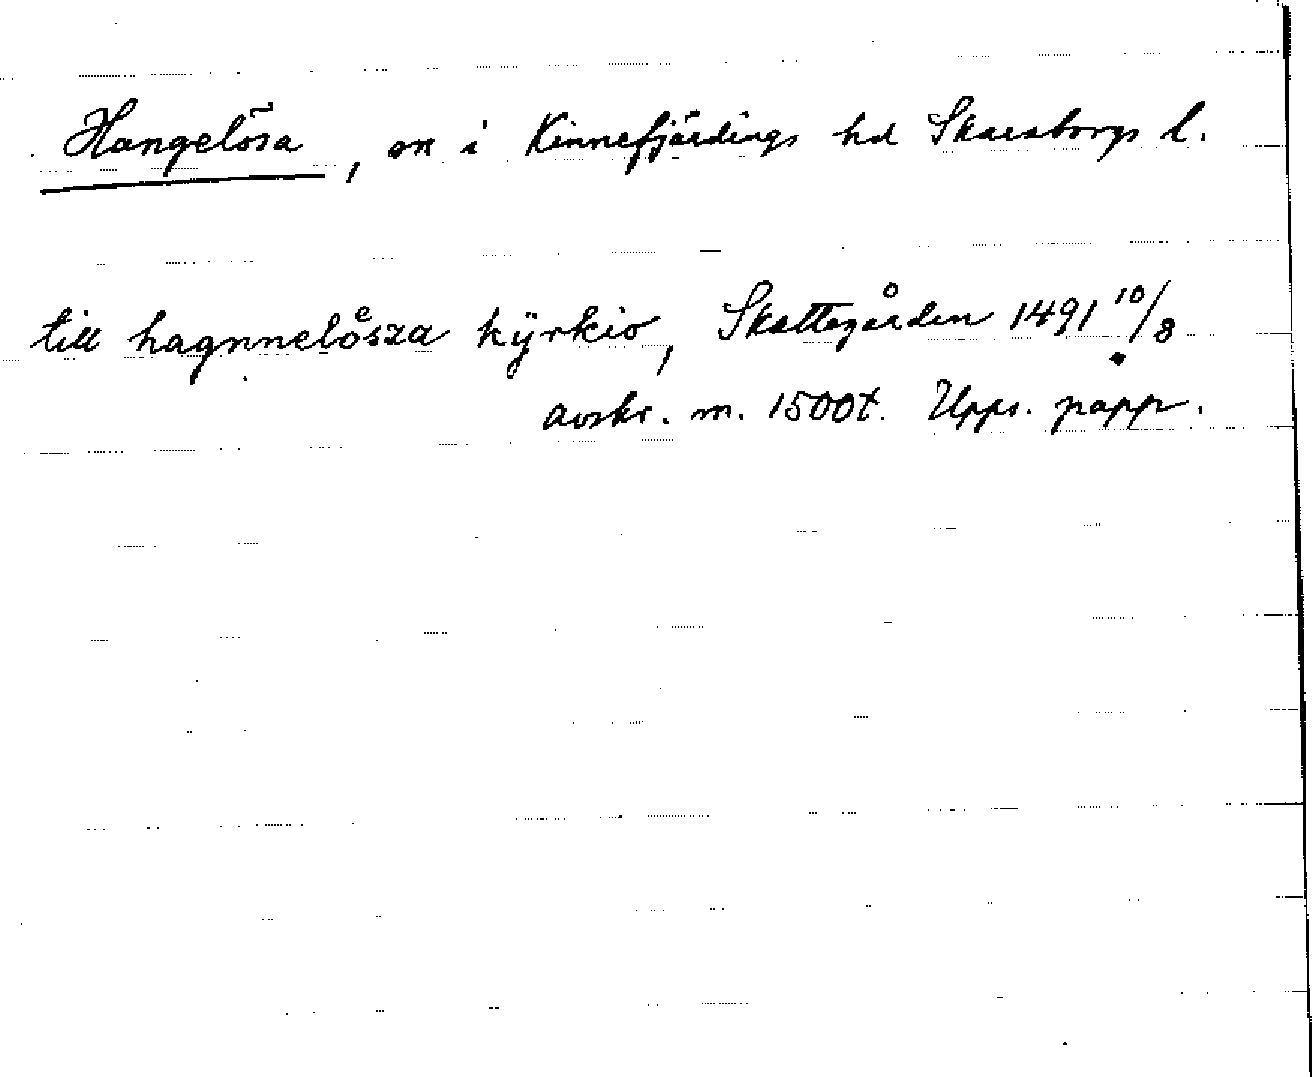 Hangelösa, sn i Kinnefjärdings hd Skaraborgs l.
till hagnnelöͤsza kÿrkio, Skattegården 1491 10/8
avskr. m. 1500t. Upps. papp.